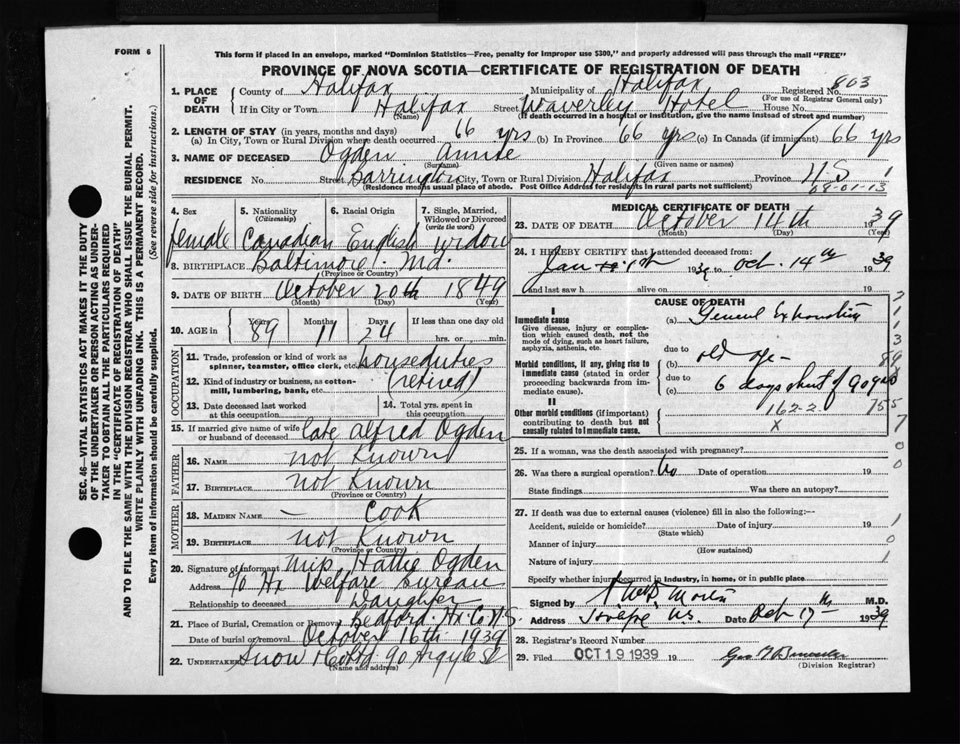 FORM 6
This form if placed in an envelope, marked "Dominion Statistics—Free, penalty for improper use $300," and properly addressed will pass through the mail "FREE"
PROVINCE OF NOVA SCOTIA—CERTIFICATE OF REGISTRATION OF DEATH
1. PLACE OF DEATH County of Halifax Municipality of Halifax Registered No. 803
(For use of Registrar General only)
If in City or Town Halifax Street Waverley Hotel House No.
(Name) (If death occurred in a hospital or institution, give the name instead of street and number)
2. LENGTH OF STAY (in years, months and days)
(a) In City, Town or Rural Division where death occurred 66 yrs (b) In Province 66 yrs (c) In Canada (if immigrant) 66 yrs
3. NAME OF DECEASED Ogden Annie
(Surname) (Given name or names)
RESIDENCE No. Street Barrington City, Town or Rural Division Halifax Province N S
(Residence means usual place of abode. Post Office Address for residents in rural parts not sufficient)
08-01-13
4. Sex 5. Nationality (Citizenship) 6. Racial Origin 7. Single, Married, Widowed or Divorced (write the word)
female Canadian English widow
8. BIRTHPLACE Baltimore Md.
(Province or Country)
9. DATE OF BIRTH October 20th 1849
(Month) (Day) (Year)
10. AGE in Years Months Days If less than one day old
89 11 24 hrs. or min.
OCCUPATION
11. Trade, profession or kind of work as spinner, teamster, office clerk, etc. houseduties
12. Kind of industry or business, as cotton-mill, lumbering, bank, etc. (retired)
13. Date deceased last worked at this occupation 14. Total yrs. spent in this occupation
15. If married give name of wife or husband of deceased late Alfred Ogden
FATHER
16. Name not Known
17. Birthplace not Known
(Province or Country)
MOTHER
18. Maiden Name — Cook
19. Birthplace not Known
(Province or Country)
20. Signature of informant Miss Hattie Ogden
Address c/o Hx Welfare Bureau
Relationship to deceased Daughter
21. Place of Burial, Cremation or Removal Bedford Hx Co N.S.
Date of burial or removal October 16th 1939
22. Undertaker Snow & Co Ltd 90 Argyle St
(Name and address)
MEDICAL CERTIFICATE OF DEATH
23. DATE OF DEATH October 14th 1939
(Month) (Day) (Year)
24. I HEREBY CERTIFY that I attended deceased from:
Jan 1939 to Oct. 14th 1939
and last saw h alive on 19
CAUSE OF DEATH
I
Immediate cause
Give disease, injury or complication which caused death, not the mode of dying, such as heart failure, asphyxia, asthenia, etc.
(a) General Exhaustion
due to
Morbid conditions, if any, giving rise to immediate cause (stated in order proceeding backwards from immediate cause).
(b) old age
due to
(c) 6 days short of 90 yrs
II
Other morbid conditions (if important) contributing to death but not causally related to immediate cause.
162-2
X
25. If a woman, was the death associated with pregnancy?
26. Was there a surgical operation? No Date of operation 19
State findings Was there an autopsy?
27. If death was due to external causes (violence) fill in also the following:—
Accident, suicide or homicide? Date of injury 19
(State which)
Manner of injury
(How sustained)
Nature of injury
Specify whether injury occurred in industry, in home, or in public place
Signed by M.D.
Address N.S. Date Oct 17th 1939
28. Registrar's Record Number
29. Filed OCT 19 1939 19
(Division Registrar)
SEC. 46—VITAL STATISTICS ACT MAKES IT THE DUTY
OF THE UNDERTAKER OR PERSON ACTING AS UNDER-
TAKER TO OBTAIN ALL THE PARTICULARS REQUIRED
IN THE "CERTIFICATE OF REGISTRATION OF DEATH"
AND TO FILE THE SAME WITH THE DIVISION REGISTRAR WHO SHALL ISSUE THE BURIAL PERMIT.
WRITE PLAINLY WITH UNFADING INK. THIS IS A PERMANENT RECORD.
Every item of information should be carefully supplied. (See reverse side for instructions.)